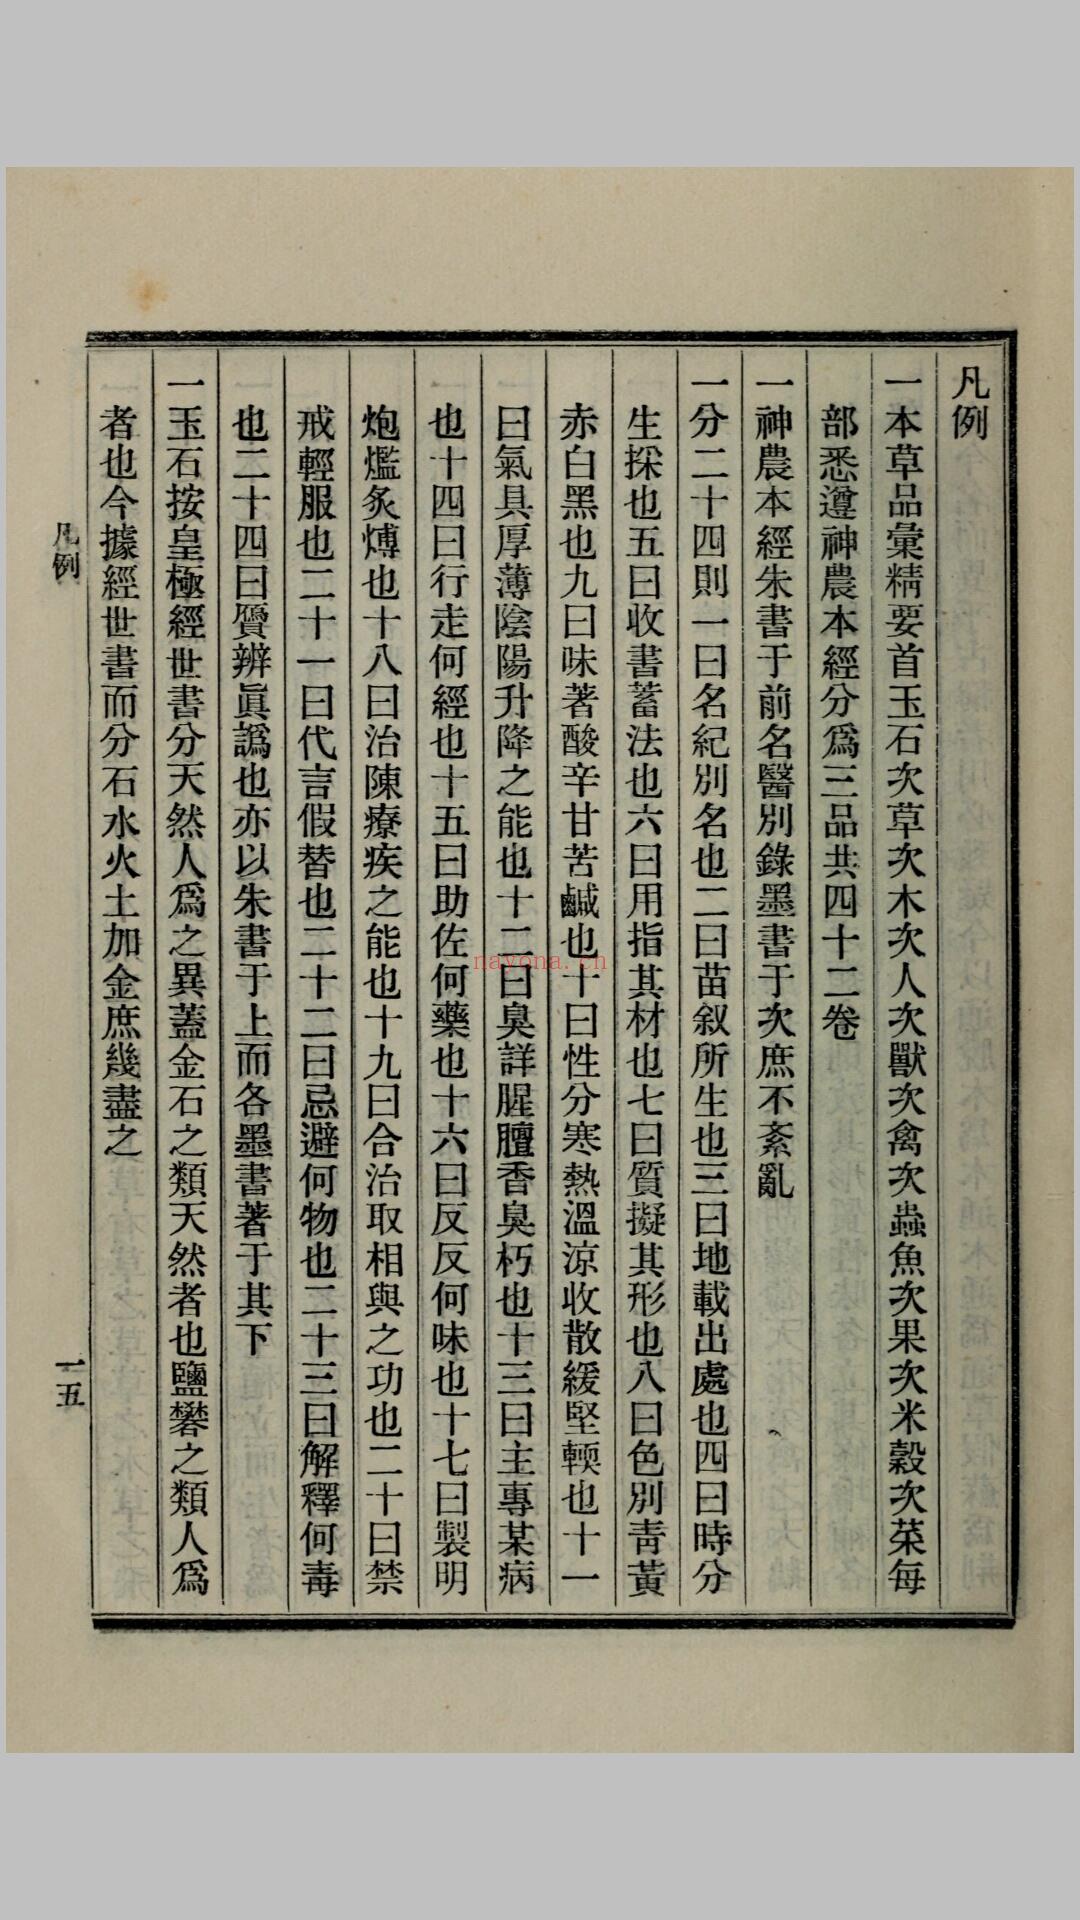 凡例
一本草品彙精要首玉石次草次木次人次獸次禽次蟲魚次果次米穀次菜每
部悉遵神農本經分爲三品共四十二卷
一神農本經朱書于前名醫別錄墨書于次庶不紊亂
一分二十四則一曰名紀別名也二曰苗叙所生也三曰地載出處也四曰時分
生採也五曰收書蓄法也六曰用指其材也七曰質擬其形也八曰色別靑黃
赤白黑也九曰味著酸辛甘苦鹹也十曰性分寒熱溫涼收散緩堅輭也十一
曰氣具厚薄陰陽升降之能也十二曰臭詳腥膻香臭朽也十三曰主專某病
也十四曰行走何經也十五曰助佐何藥也十六曰反反何味也十七曰製明
炮爁炙煿也十八曰治陳療疾之能也十九曰合治取相與之功也二十曰禁
戒輕服也二十一曰代言假替也二十二曰忌避何物也二十三曰解釋何毒
也二十四曰贗辨眞譌也亦以朱書于上而各墨書著于其下
一玉石按皇極經世書分天然人爲之異蓋金石之類天然者也鹽礬之類人爲
者也今據經世書而分石水火土加金庶幾盡之
凡例
一五
nayona.cn